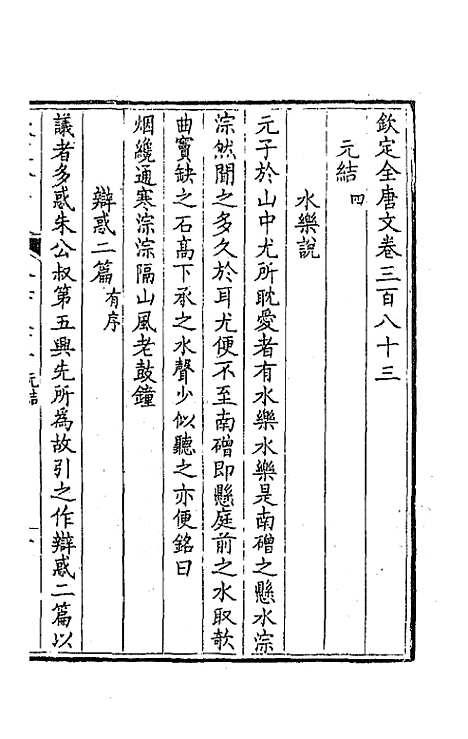 欽定全唐文卷三百八十三
元結 四
水樂說
元子於山中尤所耽愛者有水樂水樂是南磳之懸水淙
淙然聞之多久於耳尤便不至南磳即懸庭前之水取欹
曲竇缺之石高下承之水聲少似聽之亦便銘曰
烟纔通寒淙淙隔山風老鼓鐘
辯惑二篇 有序
議者多惑朱公叔第五興先所為故引之作辯惑二篇以
元結